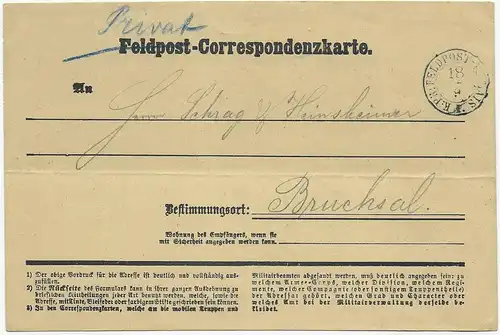 Privat
Feldpost-Correspondenzkarte.
An
Herrn Schrag & Heinsheimer
Bestimmungsort: Bruchsal.
Wohnung des Empfängers, wenn sie
mit Sicherheit angegeben werden kann.
18
1) Der obige Vordruck für die Adresse ist deutlich und vollständig aus-
zufüllen.
2) Die Rückseite des Formulars kann in ihrer ganzen Ausdehnung zu
brieflichen Mittheilungen jeder Art benutzt werden, welche, sowie die
Adresse, mit Tinte, Bleifeder oder farbigem Stifte geschrieben sein können.
3) In den Correspondenzkarten, welche an die mobilen Truppen und
Militairbeamten abgesandt werden, muß deutlich angegeben sein: zu
welchem Armee-Corps, welcher Division, welchem Regi-
mente, welcher Compagnie (oder sonstigem Truppentheile)
der Adressat gehört, welchen Grad und Character oder
welches Amt bei der Militairverwaltung derselbe be-
kleidet.